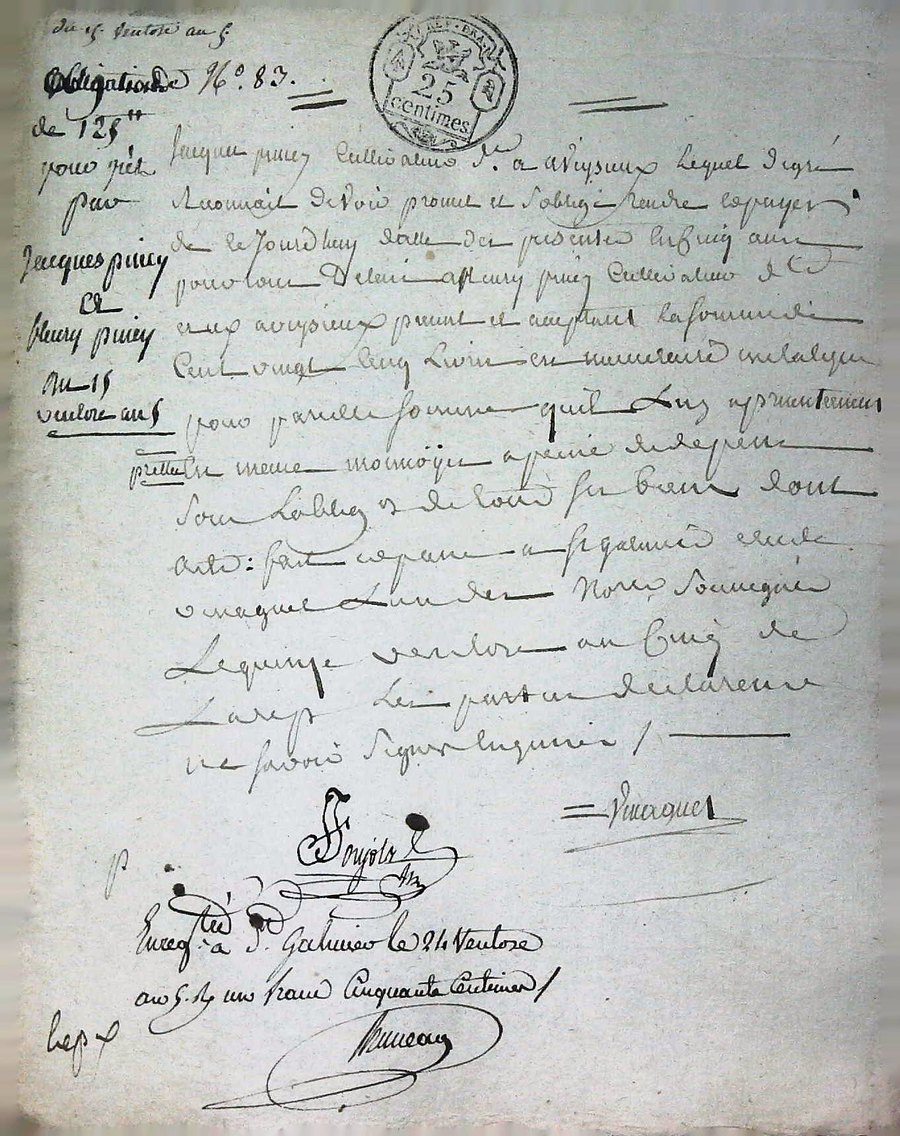 du 15. ventose an 5.
Obligation de N.° 83.
REP. FRA.
25
centimes
de 125ᵗᵗ
pour prêt
par
Jacques piney
et
fleury piney
Du 15
ventose an 5
Jacques piney Cultivateur dt a aveysieux Lequel de gré
Reconnait devoir promet et soblige rendre et payer
de ce Jourdhuy datte des presentes en Cinq ans
pour tout Delai a fleury piney Cultivateur dt
aveysieux present et acceptant la somme de
Cent vingt Cinq Livres en numeraire metalique
pour pareille somme quil Luy a presentement
prettée En meme monnoye a peine de depens
sous Lobligon de tous ses biens dont
acte: fait et passé a St galmier etude
vinaguet L'un des Nores Soussignés
Le quinze ventose an Cinq de
La rep Les parties declarent
ne savoir signer enquises /
Vinaguet
Enregtré a St. Galmier le 24 Ventose
an 5. R un franc Cinquante Centimes /